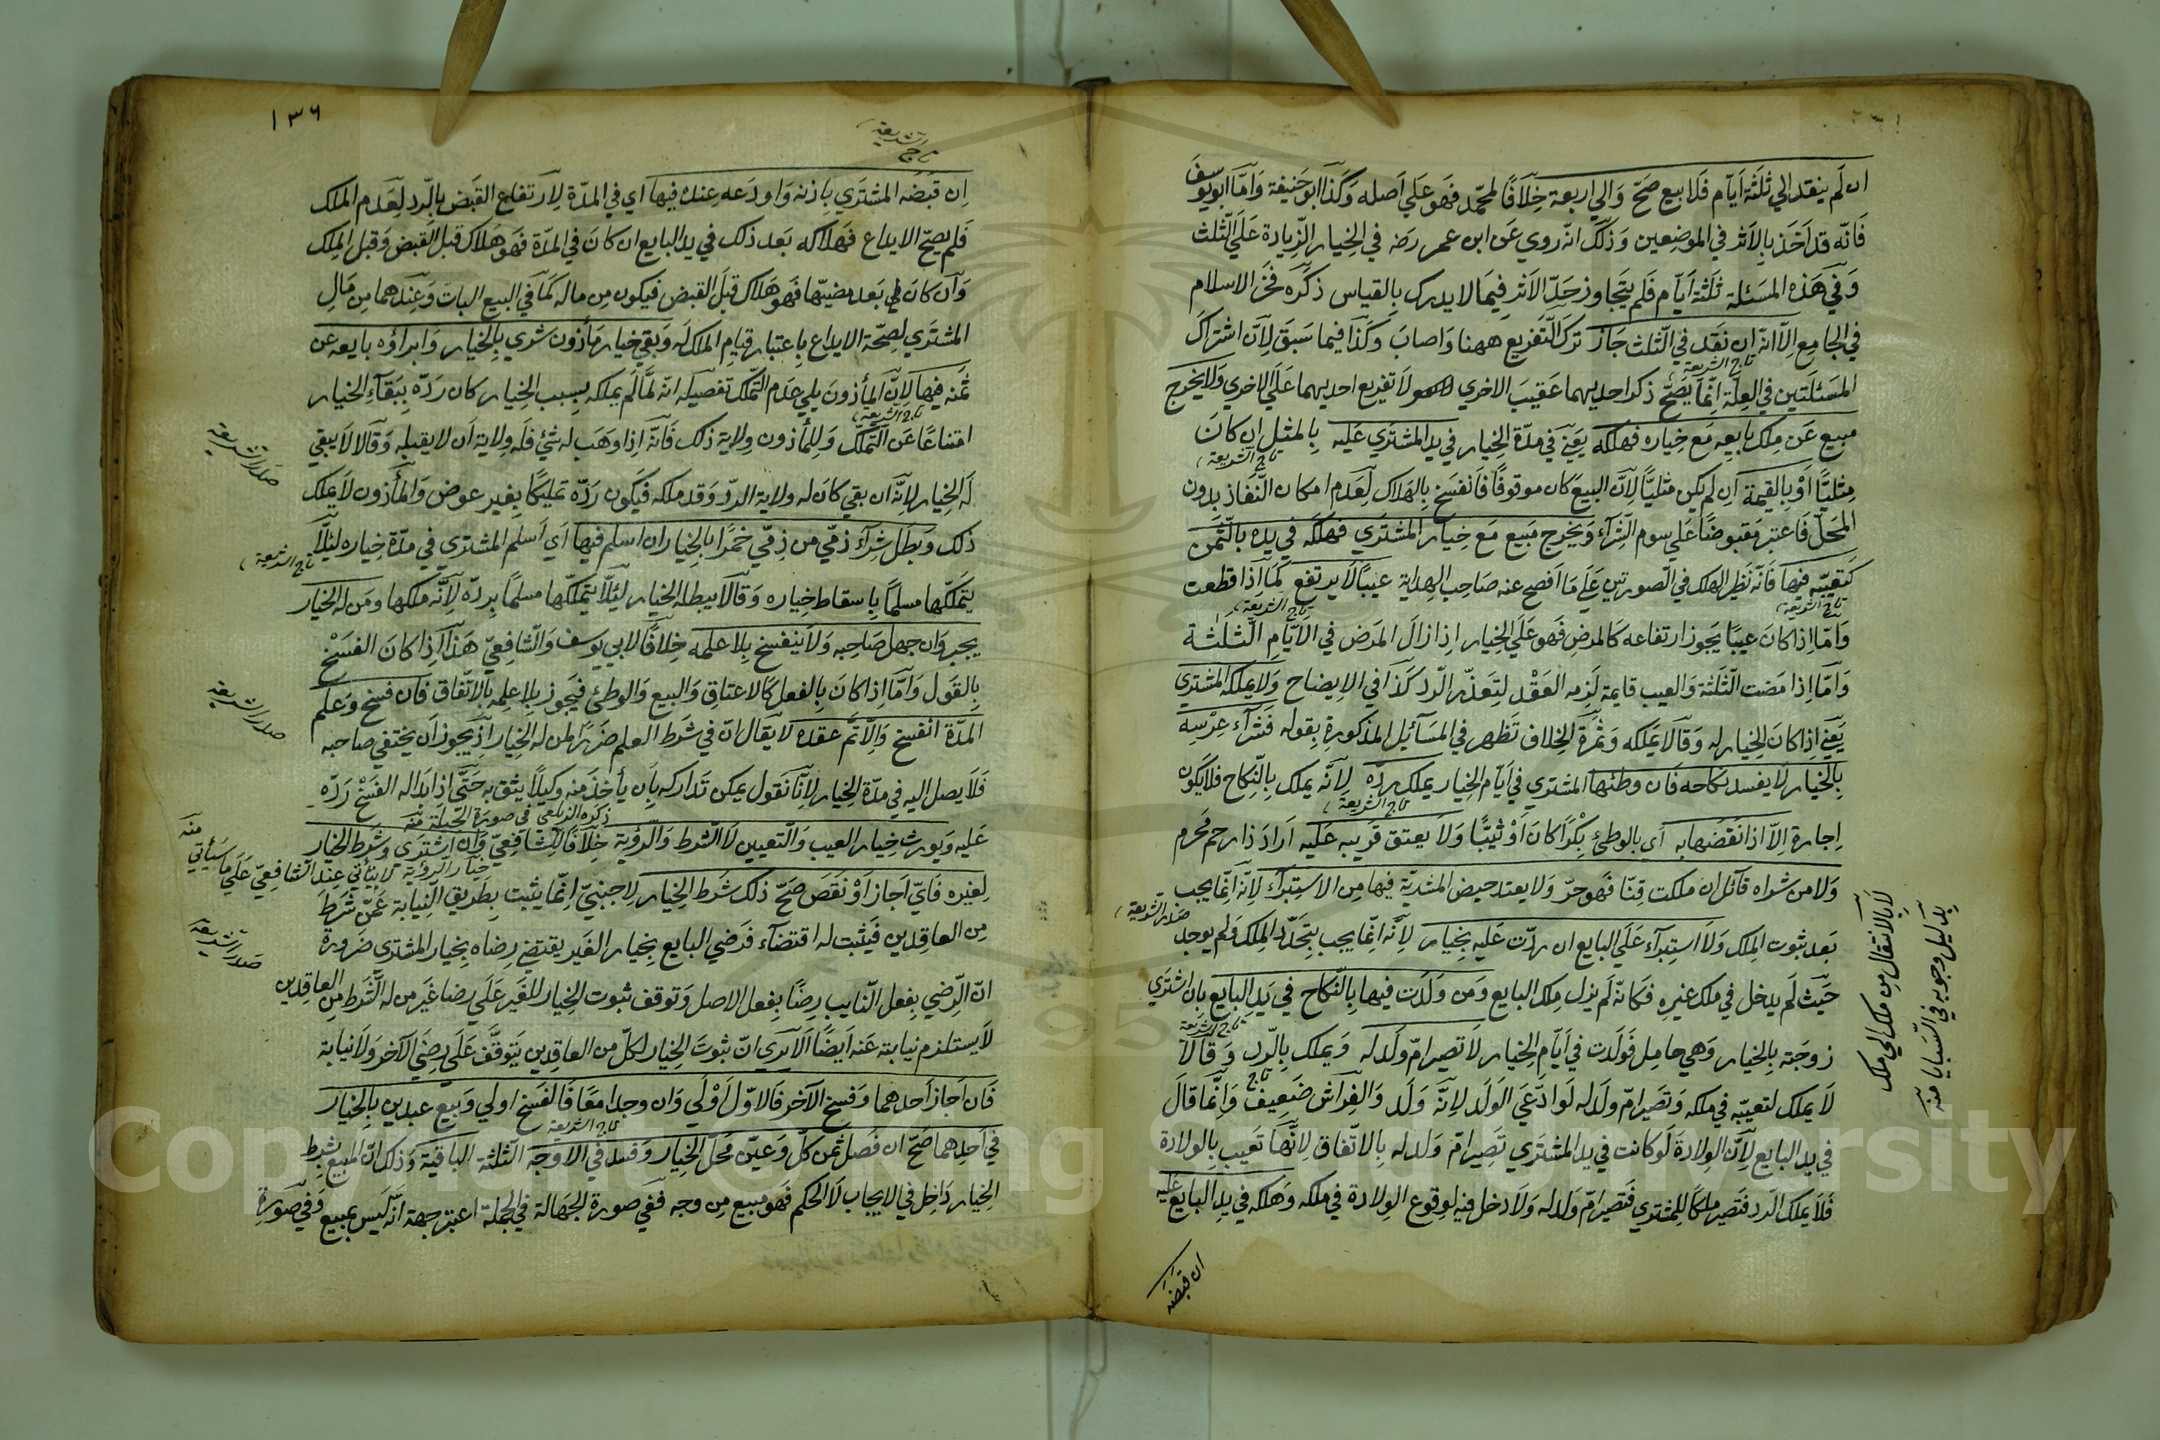 ان لم ينقد الي ثلثة ايام فلا بيع صح والي اربعة خلافا لمحمد فهو علي اصله وكذا ابو حنيفة واما ابو يوسف
فانه قد اخذ بالاثر في الموضعين وذلك انه روي عن ابن عمر رضه في الخيار الزيادة علي الثلث
وفي هذه المسئلة ثلثة ايام فلم يتجاوز حد الاثر فيما لا يدرك بالقياس ذكره فخر الاسلام
في الجامع الا انه ان نقد في الثلث جاز ترك التفريع ههنا واصاب وكذا فيما سبق لان اشتراك
تاج الشريعة
المسئلتين في العلة انما يصح ذكر احديهما عقيب الاخري لا تفريع احديهما علي الاخري ولا يخرج
مبيع عن ملك بايعه مع خياره فهلكه يعني في مدة الخيار في يد المشتري عليه بالمثل ان كان
تاج الشريعة
مثليا او بالقيمة ان لم يكن مثليا لان البيع كان موقوفا فانفسخ بالهلاك لعدم امكان النفاذ بدون
المحل فاعتبر مقبوضا علي سوم الشراء ويخرج مبيع مع خيار المشتري فهلكه في يده بالثمن
كتعيبه فيها فانه نظير الهلك في الصورتين علي ما افصح عنه صاحب الهداية عيبا لا يرتفع كما اذا قطعت
تاج الشريعة تاج الشريعة
واما اذا كان عيبا يجوز ارتفاعه كالمرض فهو علي الخيار اذا زال المرض في الايام الثلثة
واما اذا مضت الثلثة والعيب قايمة لزمه العقد لتعذر الرد كذا في الايضاح ولا يملكه المشتري
يعني اذا كان الخيار له وقالا يملكه وثمرة الخلاف تظهر في المسائل المذكورة بقوله فشراء عرسه
بالخيار لا يفسد نكاحه فان وطئها المشتري في ايام الخيار يملك رده لانه يملك بالنكاح فلا يكون
تاج الشريعة
اجازة الا اذا نقضها به اي بالوطئ بكرا كان او ثيبا ولا يعتق قريبه عليه اراد ذا رحم محرم
ولا من شراه قائل ان ملكت قنا فهو حر ولا يعتد حيض المشترية فيها من الاستبراء لانه انما يجب
صدر الشريعة
بعد ثبوت الملك ولا استبراء علي البايع ان ردت عليه بخيار لانه انما يجب بتجدد الملك ولم يوجد
حيث لم يدخل في ملك غيره فكانه لم يزل ملك البايع ومن ولدت فيها بالنكاح في يد البايع بان اشتري
زوجته بالخيار وهي حامل فولدت في ايام الخيار لا تصير ام ولد له ويملك بالرد وقالا
تاج الشريعة
لا يملك لتعيبه في ملكه وتصير ام ولد له لو ادعي الولد لانه ولد والفراش ضعيف وانما قال
تاج
في يد البايع لان الولادة لو كانت في يد المشتري تصير ام ولد له بالاتفاق لانها تعيب بالولادة
فلا يملك الرد فتصير ملكا للمشتري فتصير ام ولد له ولا دخل فيه لوقوع الولادة في ملكه وهلكه في يد البايع عليه
ان قبضه
لا بالانتقال من ملك الي ملك
بدليل وجوبه في السبايا منه
١٣٦
تاج الشريعة
ان قبضه المشتري باذنه واودعه عنده فيها اي في المدة لارتفاع القبض بالرد لعدم الملك
فلم يصح الايداع فهلاكه بعد ذلك في يد البايع ان كان في المدة فهو هلاك قبل القبض وقبل الملك
وان كان بعد مضيها فهو هلاك قبل القبض فيكون من ماله كما في البيع البات وعندهما من مال
المشتري لصحة الايداع باعتبار قيام الملك له وبقي خيار مأذون شري بالخيار وابراؤه بايعه عن
ثمنه فيها لان المأذون يلي عدم التملك تفصيله انه لما لم يملكه بسبب الخيار كان رده ببقاء الخيار
تاج الشريعة
امتناعا عن التملك وللمأذون ولاية ذلك فانه اذا وهب له شئ فله ولاية ان لا يقبله وقالا لا يبقي
صدر الشريعة
له الخيار لانه ان بقي كان له ولاية الرد وقد ملكه فيكون رده تمليكا بغير عوض والمأذون لا يملك
ذلك وبطل شراء ذمي من ذمي خمرا بالخيار ان اسلم فيها اي اسلم المشتري في مدة خياره لئلا
تاج الشريعة
يتملكها مسلما باسقاط خياره وقالا يبطله الخيار لئلا يتملكها مسلما برده لانه ملكها ومن له الخيار
يجيز وان جهل صاحبه ولا ينفسخ بلا علمه خلافا لابي يوسف والشافعي هذا اذا كان الفسخ
بالقول واما اذا كان بالفعل كالاعتاق والبيع والوطئ فيجوز بلا علمه بالاتفاق فان فسخ وعلم
صدر الشريعة
المدة انفسخ والا تم عقده لا يقال ان في شرط العلم ضررا لمن له الخيار اذ يجوز ان يختفي صاحبه
فلا يصل اليه في مدة الخيار لانا نقول يمكن تداركه بان يأخذ منه وكيلا يثق به حتي اذا بدا له الفسخ رده
ذكره الزيلعي في صورة الحيلة منه
عليه ويورث خيار العيب والتعيين لا الشرط والرؤية خلافا للشافعي وان اشتري وشرط الخيار
خيار الرؤية لا يتأتي عند الشافعي علي ما سيأتي منه
لغيره فاي اجاز او نقص صح ذلك شرط الخيار لاجنبي انما يثبت بطريق النيابة عمن شرط
من العاقدين فيثبت له اقتضاء فرضي البايع بخيار الغير يقتضي رضاه بخيار المشتري ضرورة
صدر الشريعة
ان الرضي بفعل النايب رضا بفعل الاصل وتوقف ثبوت الخيار للغير علي رضا غير من له الشرط من العاقدين
لا يستلزم نيابته عنه ايضا الا يري ان ثبوت الخيار لكل من العاقدين يتوقف علي رضي الآخر ولا نيابة
فان اجاز احدهما وفسخ الآخر فالاول اولي وان وجدا معا فالفسخ اولي وبيع عبدين بالخيار
في احدهما صح ان فصل ثمن كل وعين محل الخيار وفسد في الاوجه الثلثة الباقية وذلك ان المبيع بشرط
تاج الشريعة
الخيار داخل في الايجاب لا الحكم فهو مبيع من وجه ففي صورة الجهالة في الجملة اعتبر جهة انه ليس بمبيع وفي صورة
Copyright © King Saud University
1957